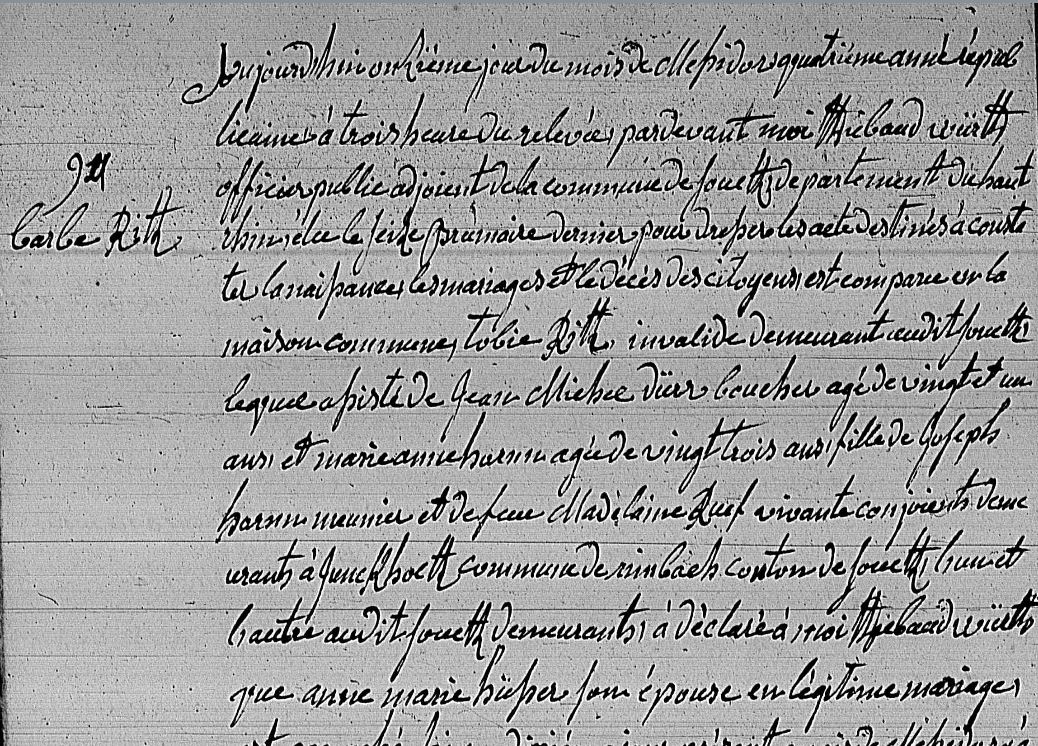 Aujourd'hui onzième jour du mois de Messidor quatrième anné répub
licaine à trois heure du relevée, pardevant moi Thiebaud würth
officier public adjoient de la commune de soultz département du haut
94
rhin, élue le seize prérimaire dernier pour dresser les acte destinés à consta
Barbe Rith
ter la naissance, les mariages et le décès des citoyens, est comparee en la
maison commune, tobie Rith, invalide demeurant audit soultz
lequel assisté de Jean Michel dürr boucher agé de vingt et un
ans, et marie anne hamm agée de vingt trois ans, fille de Joseph
hamm meunier et de feue Madelaine Ruef vivante conjoients deme
urants à commune de rimbach canton de soultz, l'un et
l'autre audit soultz demeurants, à déclaré à moi Thiebaud würth
que anne marie son épouse en légitime mariage,